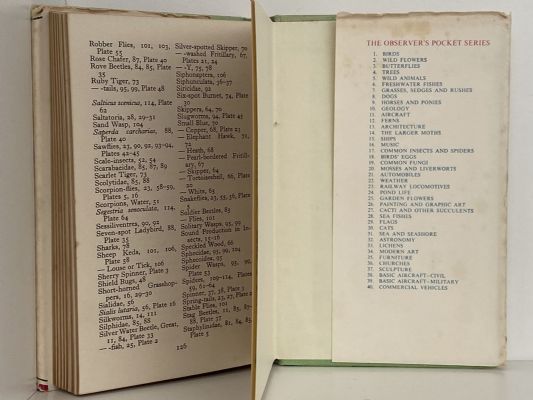 Robber Flies, 101, 103,
Plate 55
Rose Chafer, 87, Plate 40
Rove Beetles, 84, 85, Plate
35
Ruby Tiger, 73
— -tails, 95, 99, Plate 48
Salticus scenicus, 114, Plate
62
Saltatoria, 28, 29-31
Sand Wasp, 104
Saperda carcharias, 88,
Plate 40
Sawflies, 23, 90, 92, 93-94,
Plates 42-45
Scale-insects, 52, 54
Scarabaeidae, 85, 87, 89
Scarlet Tiger, 73
Scolytidae, 85, 88
Scorpion-flies, 23, 58-59,
Plates 5, 16
Scorpions, Water, 51
Segestria senoculata, 114,
Plate 64
Sessiliventres, 90, 92
Seven-spot Ladybird, 88,
Plate 35
Sharks, 78
Sheep Keds, 101, 106,
Plate 58
— Louse or Tick, 106
Sherry Spinner, Plate 3
Shield Bugs, 48
Short-horned Grasshop-
pers, 16, 29-30
Sialidae, 56
Sialis lutaria, 56, Plate 16
Silkworms, 14, 111
Silphidae, 85, 88
Silver Water Beetle, Great,
11, 84, Plate 33
— -fish, 25, Plate 2
Silver-spotted Skipper, 70
— -washed Fritillary, 67,
Plates 21, 24
— -Y, 75, 78
Siphonaptera, 106
Siphunculata, 36-37
Siricidae, 92
Six-spot Burnet, 74, Plate
30
Skippers, 64, 70
Slugworms, 94, Plate 45
Small Blue, 70
— Copper, 68, Plate 23
— Elephant Hawk, 71,
72
— Heath, 68
— Pearl-bordered Fritill-
ary, 67
— Skipper, 64
— Tortoiseshell, 66, Plate
20
— White, 65
Snakeflies, 23, 55, 56, Plate
Soldier Beetles, 85
— Flies, 101
Solitary Wasps, 95, 99
Sound Production in In-
sects, 15-16
Speckled Wood, 66
Sphecidae, 95, 99, 104
Spheroides, 95
Spider Wasps, 95, 99,
Plate 53
Spiders, 109-114, Plates
59, 61-64
Spinner, 27, 28, Plate 3
Spring-tails, 23, 27, Plate 2
Stable Flies, 101
Stag Beetles, 11, 85, 87-
88, Plate 37
Staphylinidae, 81, 84, 85,
Plate 5
126
THE OBSERVER'S POCKET SERIES
1. BIRDS
2. WILD FLOWERS
3. BUTTERFLIES
4. TREES
5. WILD ANIMALS
6. FRESHWATER FISHES
7. GRASSES, SEDGES AND RUSHES
8. DOGS
9. HORSES AND PONIES
10. GEOLOGY
11. AIRCRAFT
12. FERNS
13. ARCHITECTURE
14. THE LARGER MOTHS
15. SHIPS
16. MUSIC
17. COMMON INSECTS AND SPIDERS
18. BIRDS' EGGS
19. COMMON FUNGI
20. MOSSES AND LIVERWORTS
21. AUTOMOBILES
22. WEATHER
23. RAILWAY LOCOMOTIVES
24. POND LIFE
25. GARDEN FLOWERS
26. PAINTING AND GRAPHIC ART
27. CACTI AND OTHER SUCCULENTS
28. SEA FISHES
29. FLAGS
30. CATS
31. SEA AND SEASHORE
32. ASTRONOMY
33. LICHENS
34. MODERN ART
35. FURNITURE
36. CHURCHES
37. SCULPTURE
38. BASIC AIRCRAFT–CIVIL
39. BASIC AIRCRAFT–MILITARY
40. COMMERCIAL VEHICLES